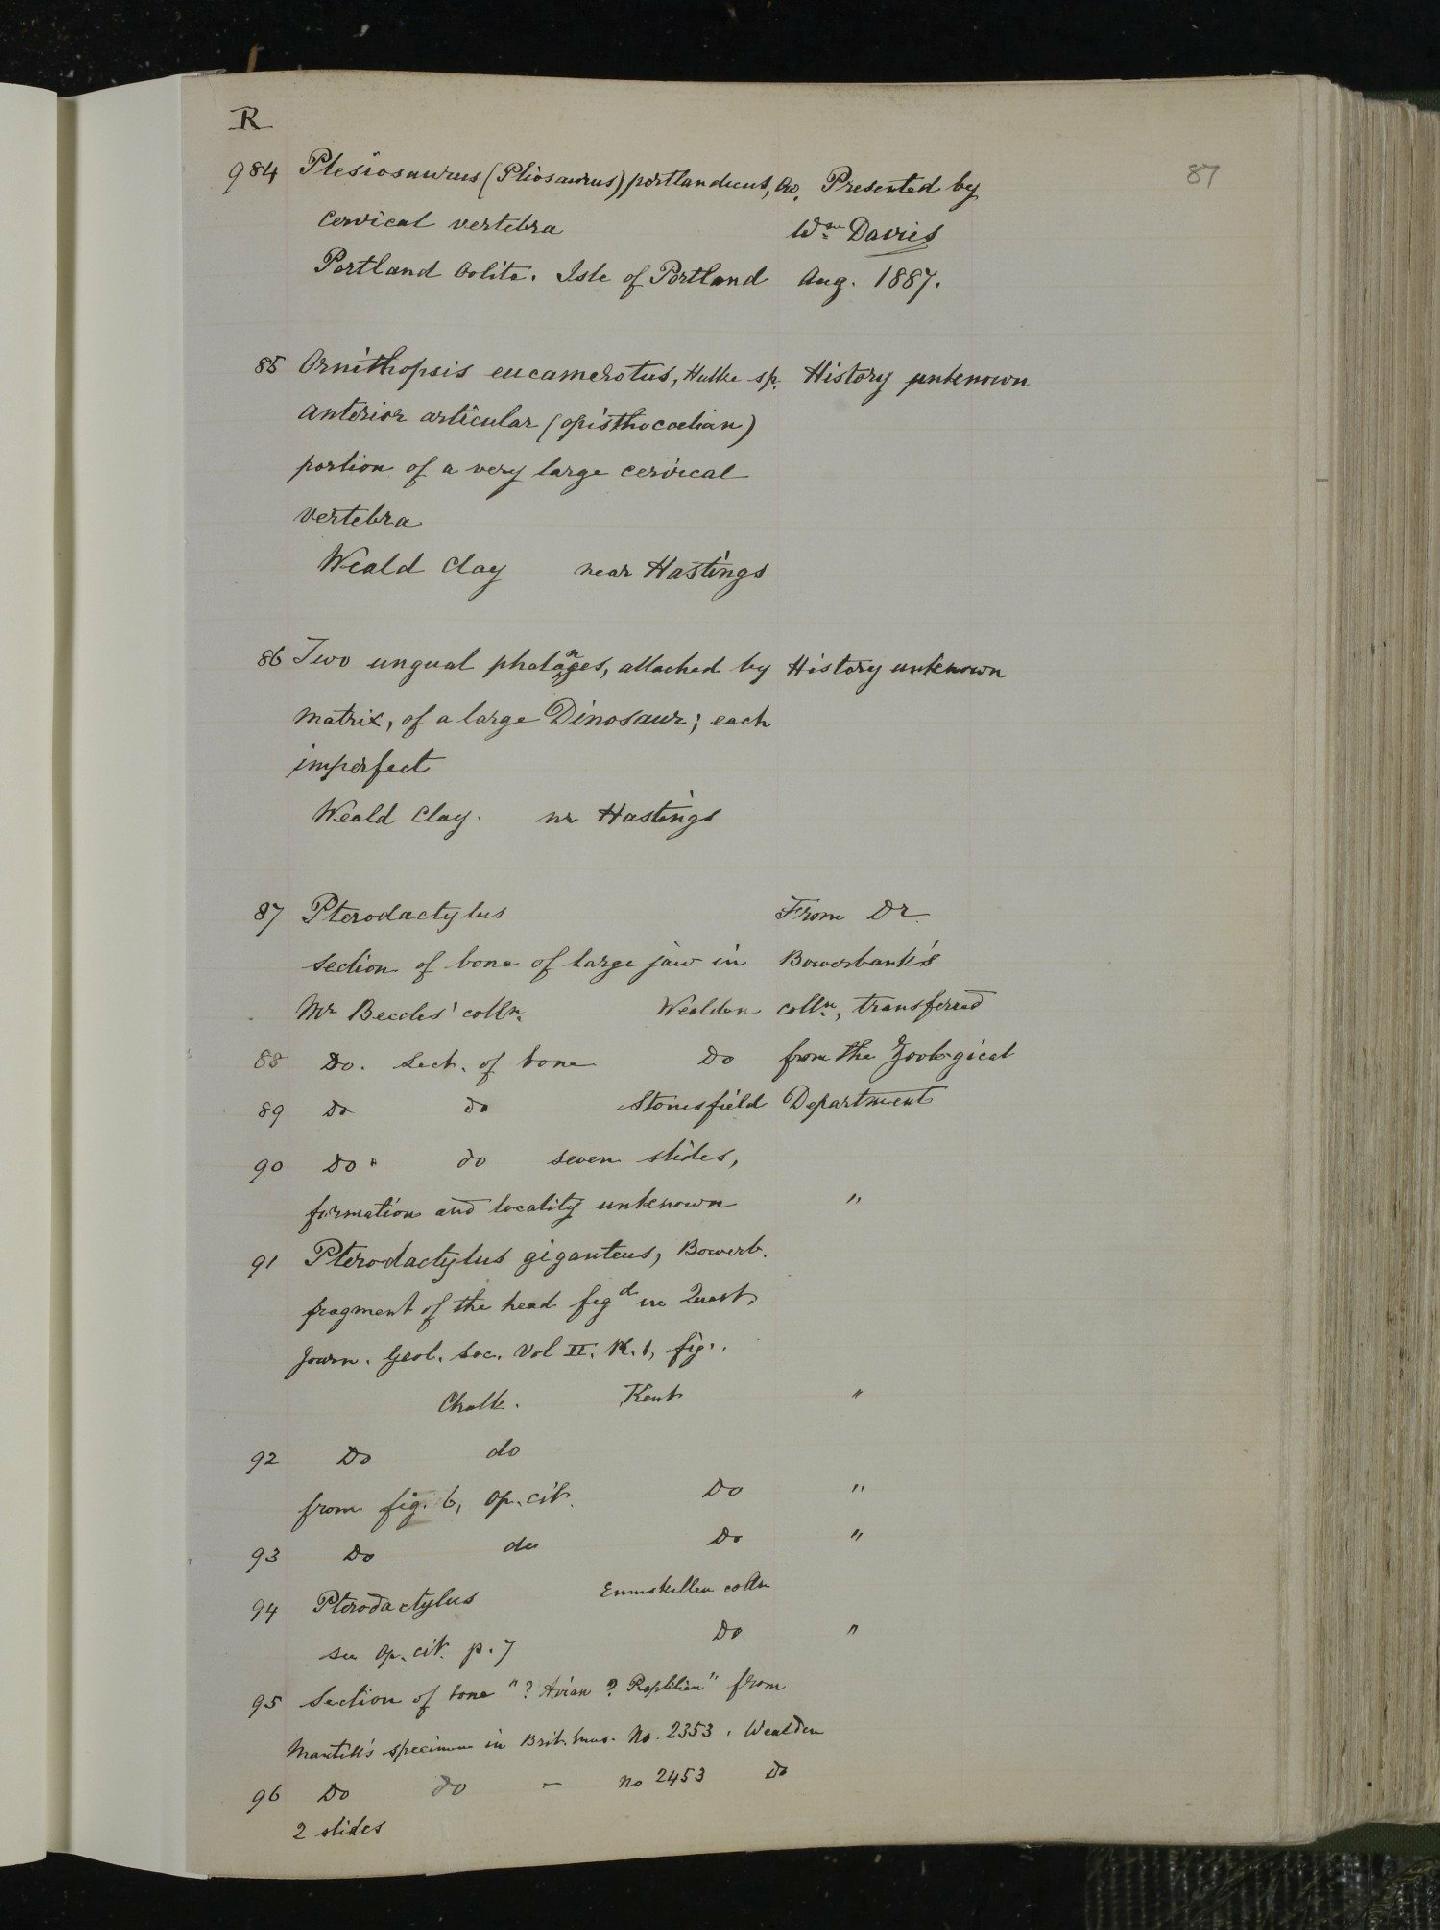 R
87
984 Plesiosaurus (Pliosaurus) portlandicus, Ow. Presented by
Cervical vertebra Wm Davies
Portland Oolite. Isle of Portland Aug. 1887.
85 Ornithopsis eucamerotus, Hulke sp. History unknown
Anterior articular (opisthocoelian)
portion of a very large cervical
vertebra
Weald Clay near Hastings
86 Two ungual phalanges, attached by History unknown
matrix, of a large Dinosaur; each
imperfect
Weald Clay. nr Hastings
87 Pterodactylus From Dr.
Section of bone of large jaw in Bowerbank's
Mr Beccles' colln. Wealden colln, transferred
88 Do. Sect. of bone Do from the Zoological
89 Do do Stonesfield Department
90 Do " do seven slides,
formation and locality unknown "
91 Pterodactylus giganteus, Bowerb.
fragment of the head figd in Quart.
Journ. Geol. Soc. Vol II. Pl. 1, fig.
Chalk. Kent "
92 Do do
from fig. 6, op. cit. Do "
93 Do do Do "
94 Pterodactylus Enniskillen colln
see op. cit. p. 7 Do "
95 Section of bone "? Avian ? Reptilian" from
Mantell's specimen in Brit. Mus. No. 2353. Wealden
96 Do do – no 2453 Do
2 slides